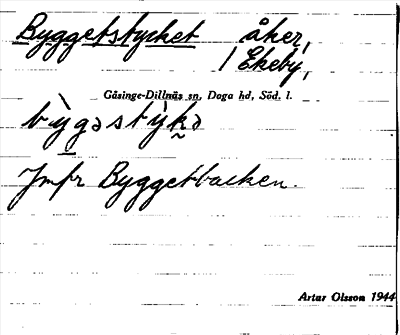 Byggetstycket åker,
/ Ekeby,
Gåsinge-Dillnäs sn, Daga hd, Söd. l.
by̆gəsty̆k̬ə
Jmfr Byggetbacken.
Artur Olsson 1944